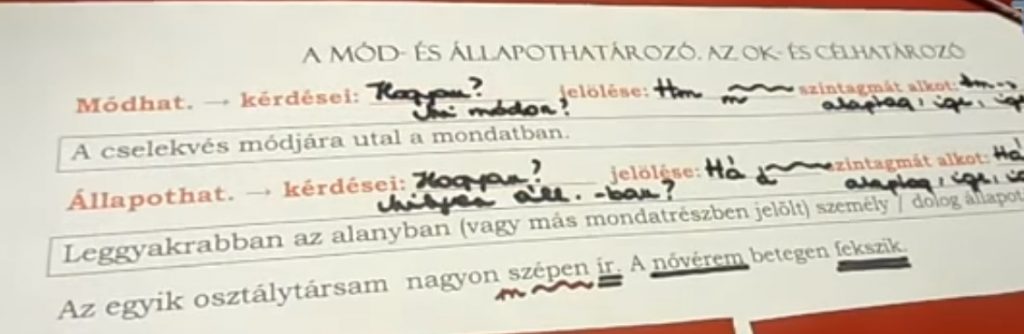 A MÓD- ÉS ÁLLAPOTHATÁROZÓ. AZ OK- ÉS CÉLHATÁROZÓ
Módhat. → kérdései: Hogyan? jelölése: Hm m szintagmát alkot: Hm→
Mi módon? alaptag, ige,
A cselekvés módjára utal a mondatban.
Állapothat. → kérdései: Hogyan? jelölése: Há á szintagmát alkot: Há
Milyen áll. -ban? alaptag, ige,
Leggyakrabban az alanyban (vagy más mondatrészben jelölt) személy / dolog állapot
Az egyik osztálytársam nagyon szépen ír. A nővérem betegen fekszik.
m